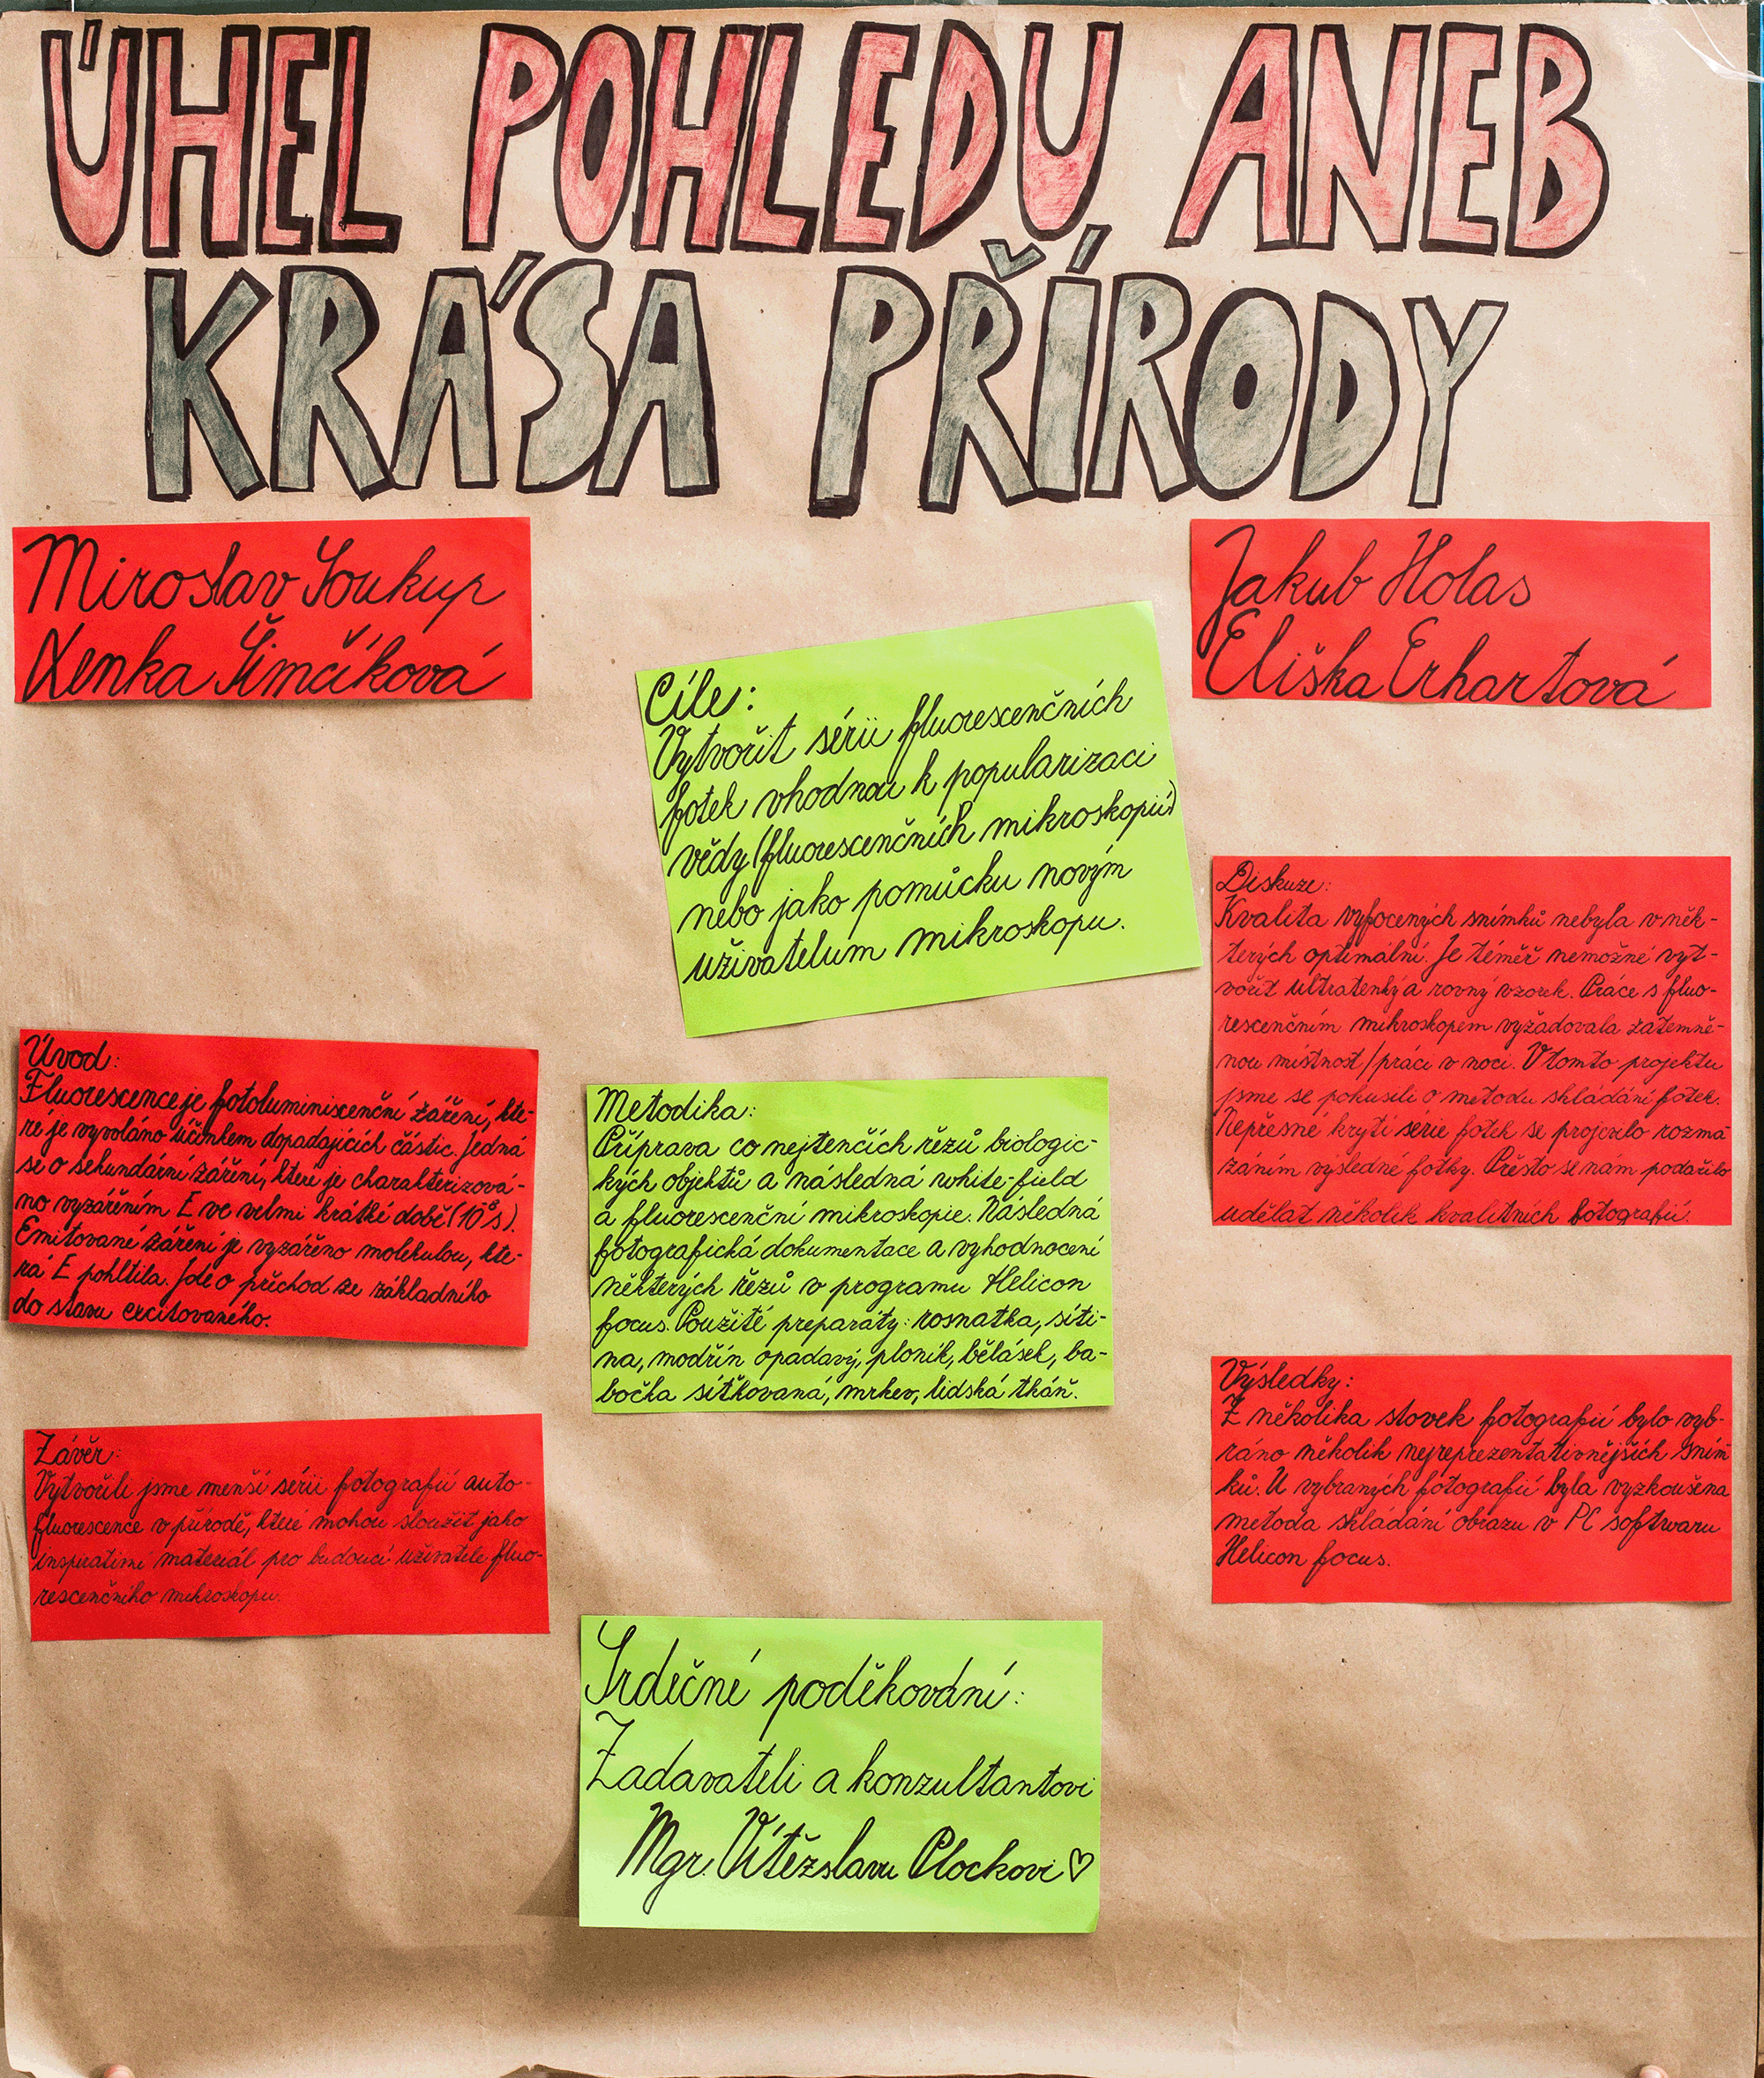 ÚHEL POHLEDU ANEB
KRÁSA PŘÍRODY
Miroslav Soukup
Lenka Šimčíková
Jakub Holas
Eliška Erhartová
Cíle:
Vytvořit sérii fluorescenčních
fotek vhodnou k popularizaci
vědy (fluorescenčních mikroskopií)
nebo jako pomůcku novým
uživatelum mikroskopu.
Úvod:
Fluorescence je fotoluminiscenční záření, kte-
ré je vyvoláno účinkem dopadajících částic. Jedná
se o sekundární záření, které je charakterizová-
no vyzářením E ve velmi krátké době (10⁻⁸s).
Emitované záření je vyzářeno molekulou, kte-
rá E pohltila. Jde o přechod ze základního
do stavu excitovaného.
Metodika:
Příprava co nejtenčích řezů biologic-
kých objektů a následná white-field
a fluorescenční mikroskopie. Následná
fotografická dokumentace a vyhodnocení
některých řezů v programu Helicon
focus. Použité preparáty: rosnatka, síti-
na, modřín opadavý, ploník, bělásek, ba-
bočka síťkovaná, mrkev, lidská tkáň.
Diskuze:
Kvalita vyfocených snímků nebyla v něk-
terých optimální. Je téměř nemožné vyt-
vořit ultratenký a rovný vzorek. Práce s fluo-
rescenčním mikroskopem vyžadovala zatemně-
nou místnost/práci v noci. V tomto projektu
jsme se pokusili o metodu skládání fotek.
Nepřesné krytí série fotek se projevilo rozma-
záním výsledné fotky. Přesto se nám podařilo
udělat několik kvalitních fotografií.
Závěr:
Vytvořili jsme menší sérii fotografií auto-
fluorescence v přírodě, které mohou sloužit jako
inspirativní materiál pro budoucí uživatele fluo-
rescenčního mikroskopu.
Výsledky:
Z několika stovek fotografií bylo vyb-
ráno několik nejreprezentativnějších sním-
ků. U vybraných fotografií byla vyzkoušena
metoda skládání obrazu v PC softwaru
Helicon focus.
Srdečné poděkování:
Zadavateli a konzultantovi
Mgr. Vítězslavu Plockovi ♡